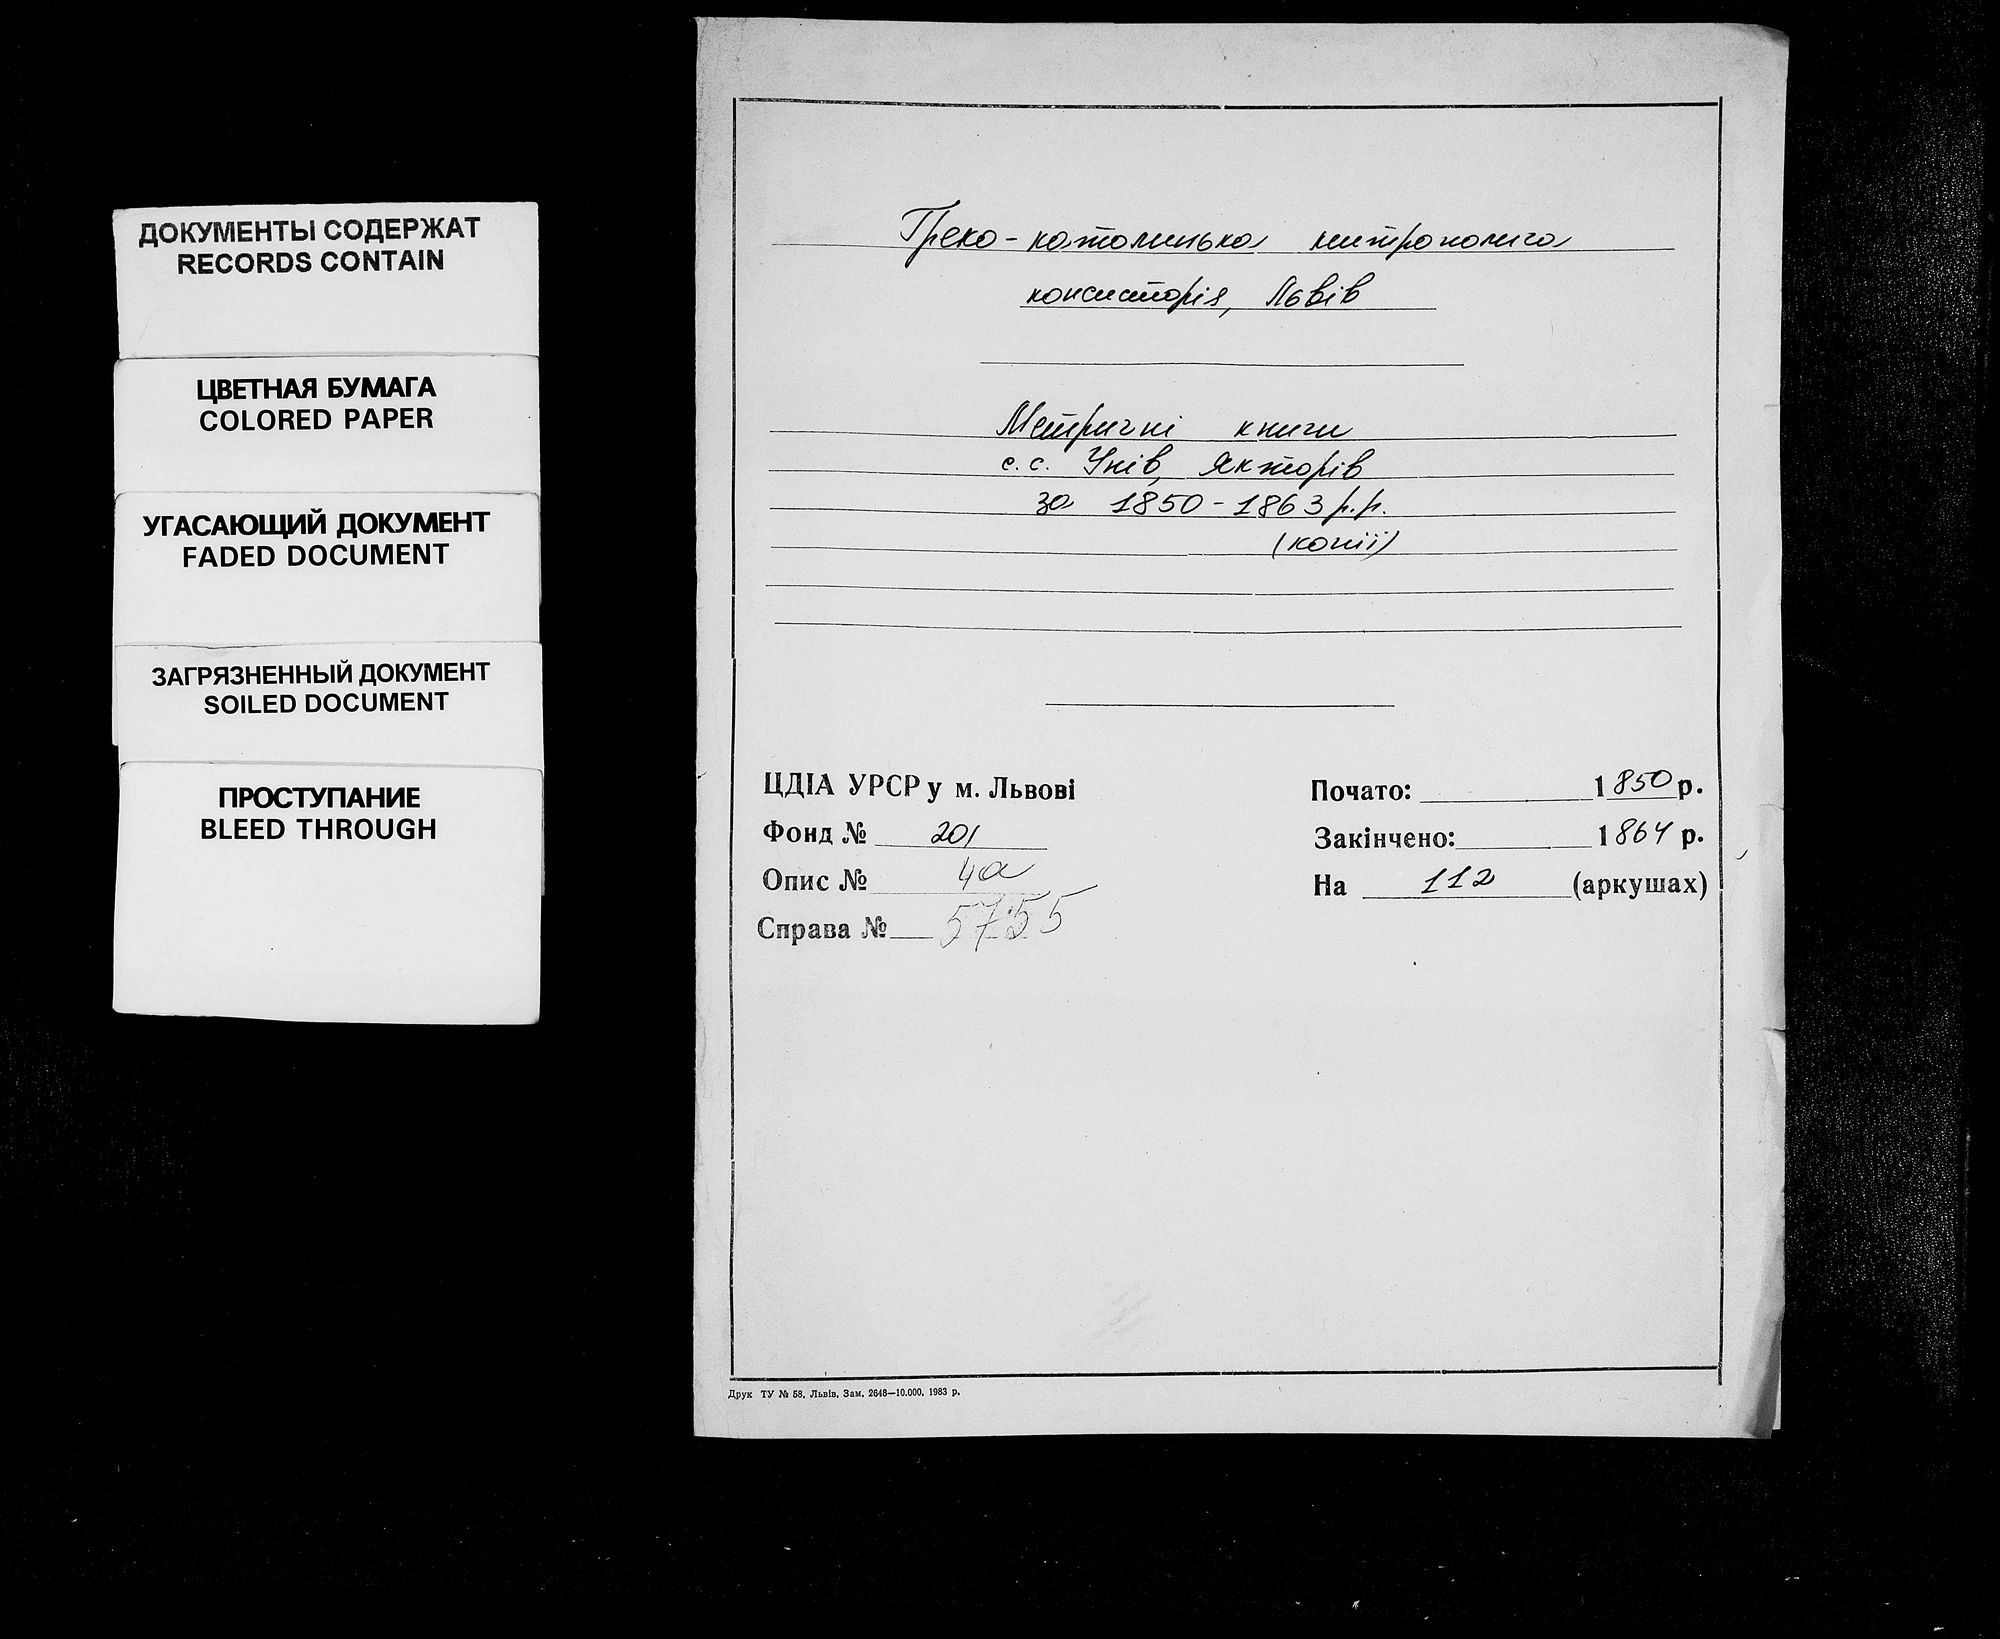 ДОКУМЕНТЫ СОДЕРЖАТ
RECORDS CONTAIN
ЦВЕТНАЯ БУМАГА
COLORED PAPER
УГАСАЮЩИЙ ДОКУМЕНТ
FADED DOCUMENT
ЗАГРЯЗНЕННЫЙ ДОКУМЕНТ
SOILED DOCUMENT
ПРОСТУПАНИЕ
BLEED THROUGH
Греко-католицька митрополича
консисторія, Львів
Метричні книги
с.с. Унів, Якторів
за 1850-1863 р.р.
(копії)
ЦДІА УРСР у м. Львові
Фонд № 201
Опис № 4а
Справа № 5755
Почато: 1850 р.
Закінчено: 1864 р.
На 112 (аркушах)
Друк ТУ № 58, Львів, Зам. 2648—10.000, 1983 р.